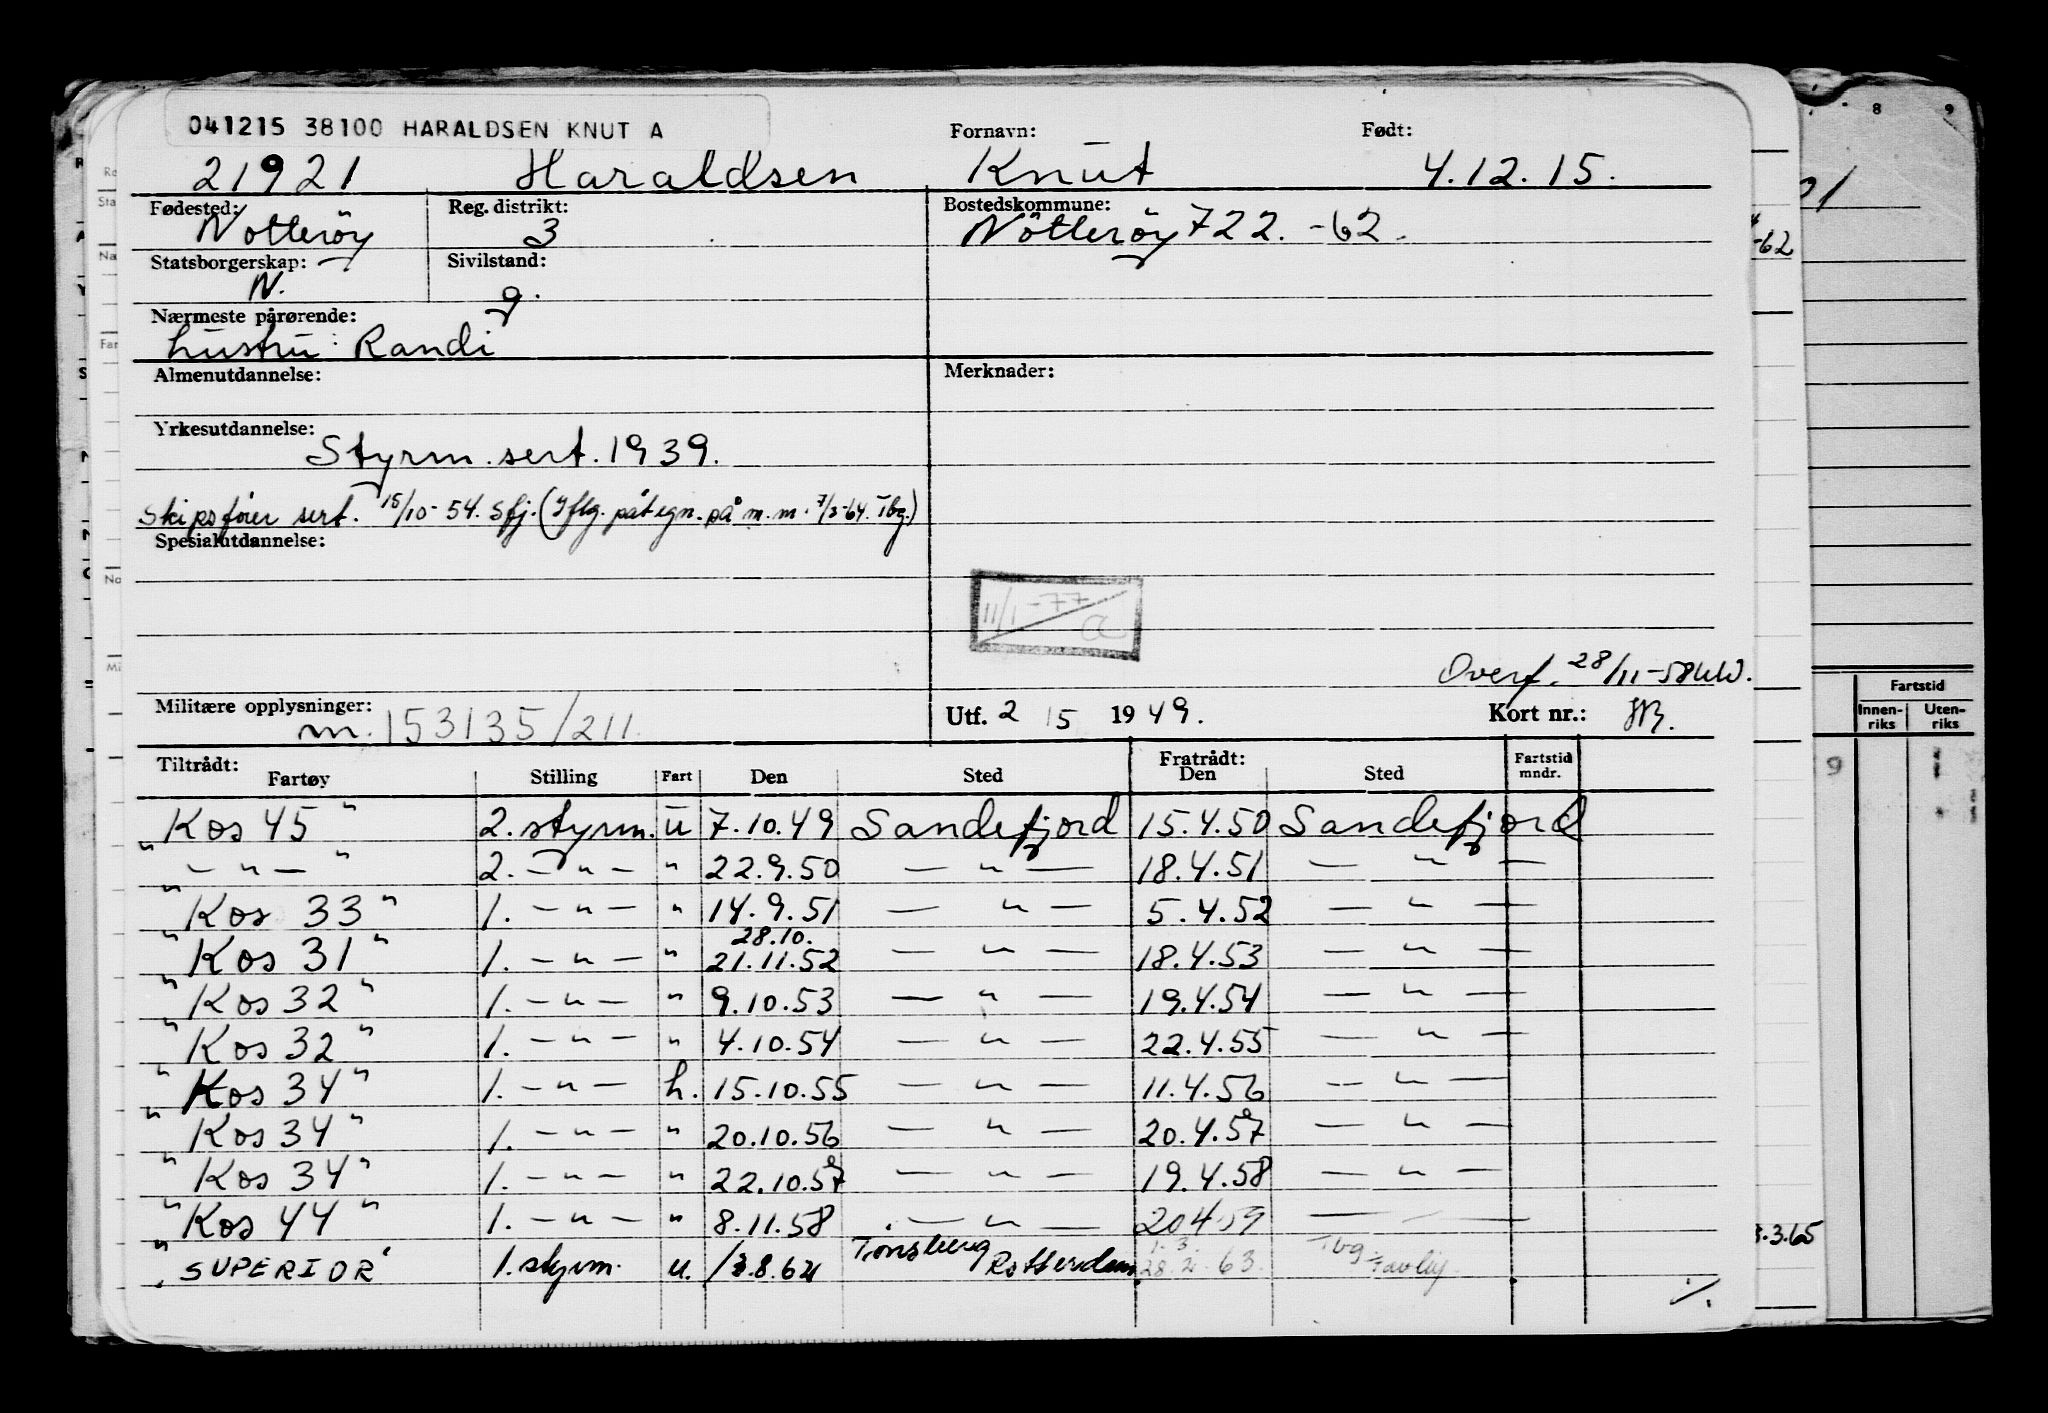 041215 38100 HARALDSEN KNUT A
Fornavn: Født:
21921 Haraldsen Knut 4.12.15.
Fødested: Reg. distrikt: Bostedskommune:
Nötteröy 3 Nötteröy 722. -62.
Statsborgerskap: Sivilstand:
N. g.
Nærmeste pårørende:
hustru: Randi
Almenutdannelse: Merknader:
Yrkesutdannelse:
Styrm. sert. 1939.
Skipsfører sert. 15/10-54. Sfj. (Iflg. påtegn. på m.m. 7/3-64. Tbg.)
Spesialutdannelse:
11/1-77
Overf. 28/11-58
Militære opplysninger: m. 153135/211.
Utf. 2 15 1949. Kort nr.:
Tiltrådt: Fratrådt:
Fartøy Stilling Fart Den Sted Den Sted Fartstid mndr.
"Kos 45" 2. styrm. u 7.10.49 Sandefjord 15.4.50 Sandefjord
"— " —" 2. — " — " 22.9.50 — " — 18.4.51 — " —
"Kos 33" 1. — " — " 14.9.51 — " — 5.4.52 — " —
28.10.
"Kos 31" 1. — " — " 21.11.52 — " — 18.4.53 — " —
"Kos 32" 1. — " — " 9.10.53 — " — 19.4.54 — " —
"Kos 32" 1. — " — " 4.10.54 — " — 22.4.55 — " —
"Kos 34" 1. — " — h. 15.10.55 — " — 11.4.56 — " —
"Kos 34" 1. — " — " 20.10.56 — " — 20.4.57 — " —
"Kos 34" 1. — " — " 22.10.57 — " — 19.4.58 — " —
"Kos 44" 1. — " — " 8.11.58 — " — 20 4 59 — " —
"SUPERIOR" 1. styrm. u. Tönsberg Rotterdam 63. Tbg
8 9
-62
Fartstid
Innen-riks Uten-riks
9
3.3.65